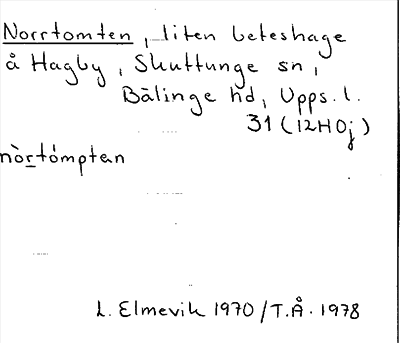 Norrtomten, liten beteshage
å Hagby, Skuttunge sn,
Bälinge hd, Upps. l.
31 (12H0j)
nòrtómptan
L. Elmevik 1970/T.Å. 1978